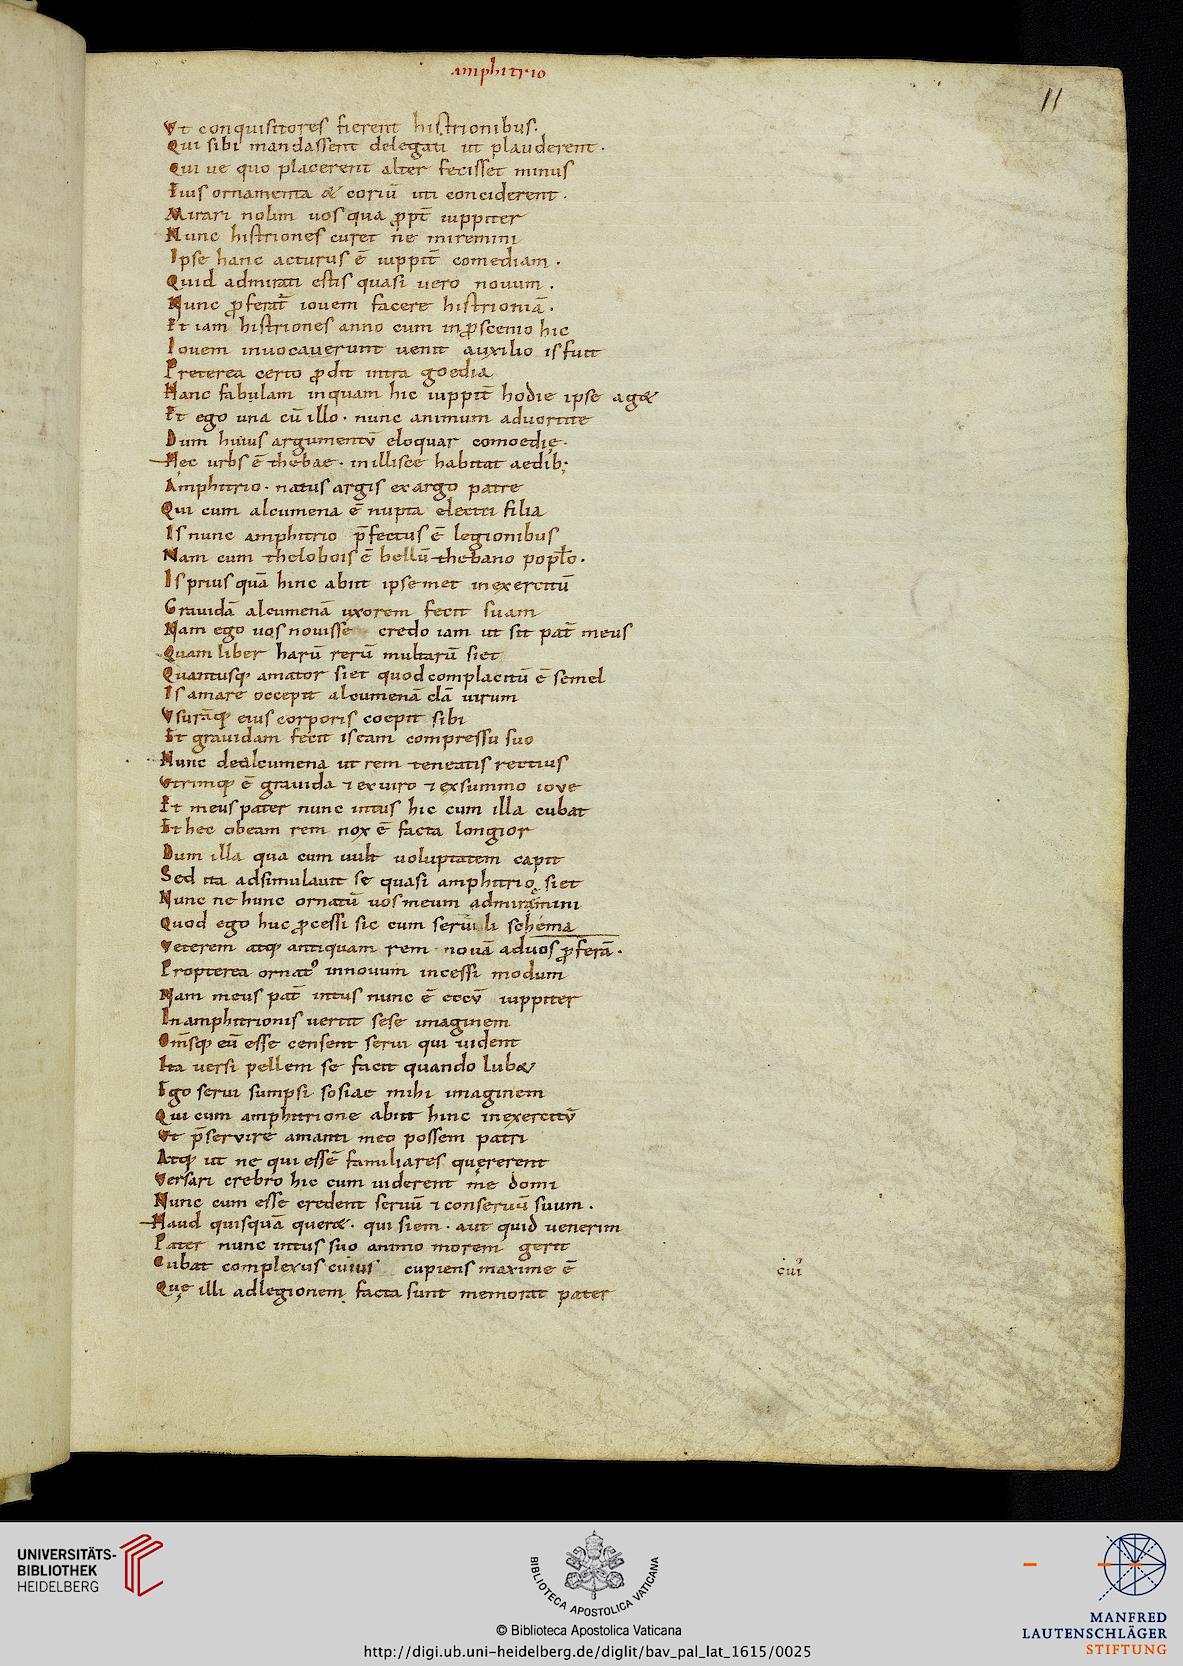 amphitrio
11
Vt conquisitores fierent histrionibus.
Qui sibi mandassent delegati ut plauderent.
Qui ue quo placerent alter fecisset minus
Eius ornamenta & coriū uti conciderent.
Mirari nolim uos qua ppt̄ iuppiter
Nunc histriones curet ne miremini
Ipse hanc acturus ē iuppit̄ comediam.
Quid admirati estis quasi uero nouum.
Nunc pferat̄ iouem facere histrioniā.
Et iam histriones anno cum in pscenio hic
Iouem inuocauerunt uenit auxilio is fuit
Preterea certo pdit intra goedia
Hanc fabulam inquam hic iuppit̄ hodie ipse ag&
Et ego una cū illo. nunc animum aduortite
Dum huius argumentū eloquar comoedię.
Hec urbs ē thebae. in illisce habitat aedib;
Amphitrio. natus argis ex argo patre
Qui cum alcumena ē nupta electri filia
Is nunc amphitrio p̄fectus ē legionibus
Nam cum thelobois ē bellū thebano popło.
Is prius quā hinc abiit ipsemet in exercitū
Grauidā alcumenā uxorem fecit suam
Nam ego uos nouisse credo iam ut sit pat̄ meus
Quam liber harū rerū multarū siet
Quantusq; amator siet quod complacitū ē semel
Is amare occepit alcumenā clā uirum
Vsurāq; eius corporis coepit sibi
Et grauidam fecit is eam compressu suo
Nunc de alcumena ut rem teneatis rectius
Vtrimq; ē grauida ⁊ ex uiro ⁊ ex summo iove
Et meus pater nunc intus hic cum illa cubat
Et hec obeam rem nox ē facta longior
Dum illa qua cum uult uoluptatem capit
Sed ita adsimulauit se quasi amphitrio siet
Nunc ne hunc ornatū uos meum admiramini
Quod ego huc pcessi sic cum seruili schema
Veterem atq; antiquam rem nouā ad uos pferā.
Propterea ornat' in nouum incessi modum
Nam meus pat̄ intus nunc ē eccū iuppiter
In amphitrionis uertit sese imaginem
Om̄sq; eū esse censent serui qui uident
Ita uersi pellem se facit quando lub&
Ego serui sumpsi sosiae mihi imaginem
Qui cum amphitrione abiit hinc in exercitū
Vt p̄servire amanti meo possem patri
Atq; ut ne qui essē familiares quererent
Versari crebro hic cum uiderent me domi
Nunc cum esse credent seruū ⁊ conseruū suum.
Haud quisquā quer&. qui siem. aut quid uenerim
Pater nunc intus suo animo morem gerit
Cubat complexus cuiui cupiens maxime ē
cui'
Quę illi ad legionem facta sunt memorat pater
UNIVERSITÄTS-
BIBLIOTHEK
HEIDELBERG
BIBLIOTECA APOSTOLICA VATICANA
© Biblioteca Apostolica Vaticana
http://digi.ub.uni-heidelberg.de/diglit/bav_pal_lat_1615/0025
MANFRED
LAUTENSCHLÄGER
STIFTUNG